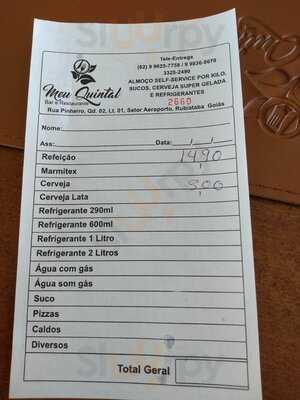 Meu Quintal
Bar e Restaurante
Tele-Entrega
(62) 9 9625-7758 / 9 9836-0678
3325-2490
ALMOÇO SELF-SERVICE POR KILO,
SUCOS, CERVEJA SUPER GELADA
E REFRIGERANTES
2660
Rua Pinheiro, Qd. 02, Lt. 01, Setor Aeroporto, Rubiataba Goiás
Nome:
Ass: Data: / /
Refeição 14,90
Marmitex
Cerveja 9,00
Cerveja Lata
Refrigerante 290ml
Refrigerante 600ml
Refrigerante 1 Litro
Refrigerante 2 Litros
Água com gás
Água som gás
Suco
Pizzas
Caldos
Diversos
Total Geral